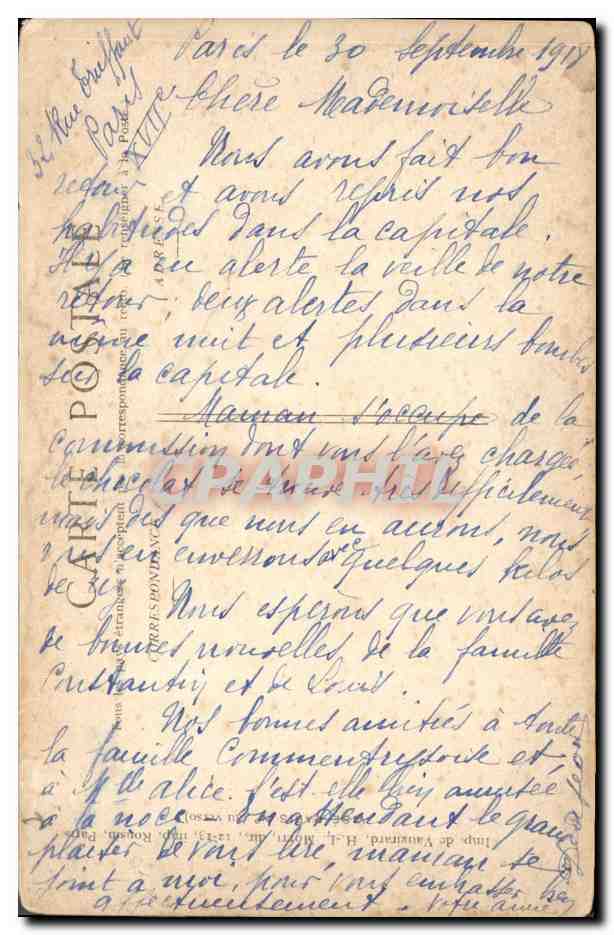 32 Rue Truffaut
Paris
XVIIe
Paris le 30 Septembre 1918
Chère Mademoiselle
Nous avons fait bon
retour et avons repris nos
habitudes dans la capitale.
Il y a eu alerte la veille de notre
retour, deux alertes dans la
même nuit et plusieurs bombes
sur la capitale.
Maman s'occupe de la
commission dont vous l'avez chargée,
le chocolat se trouve très difficilement
mais dès que nous en aurons, nous
vous en enverrons quelques kilos
de
Nous espérons que vous avez
de bonnes nouvelles de la famille
Constantin et de Louis.
Nos bonnes amitiés à toute
la famille Commentryoise et
à Mlle alice. S'est elle bien amusée
à la noce. En attendant le grand
plaisir de vous lire, maman se
joint à moi, pour vous embrasser bien
affectueusement. votre amie
CARTE POSTALE
Tous les pays étrangers n'acceptent pas la correspondance au recto. (Se renseigner à la Poste)
CORRESPONDANCE
ADRESSE
Imp. de Vaugirard, H.-L. Motti, dir., 12-13, imp. Ronsin, Paris
CPARAMA